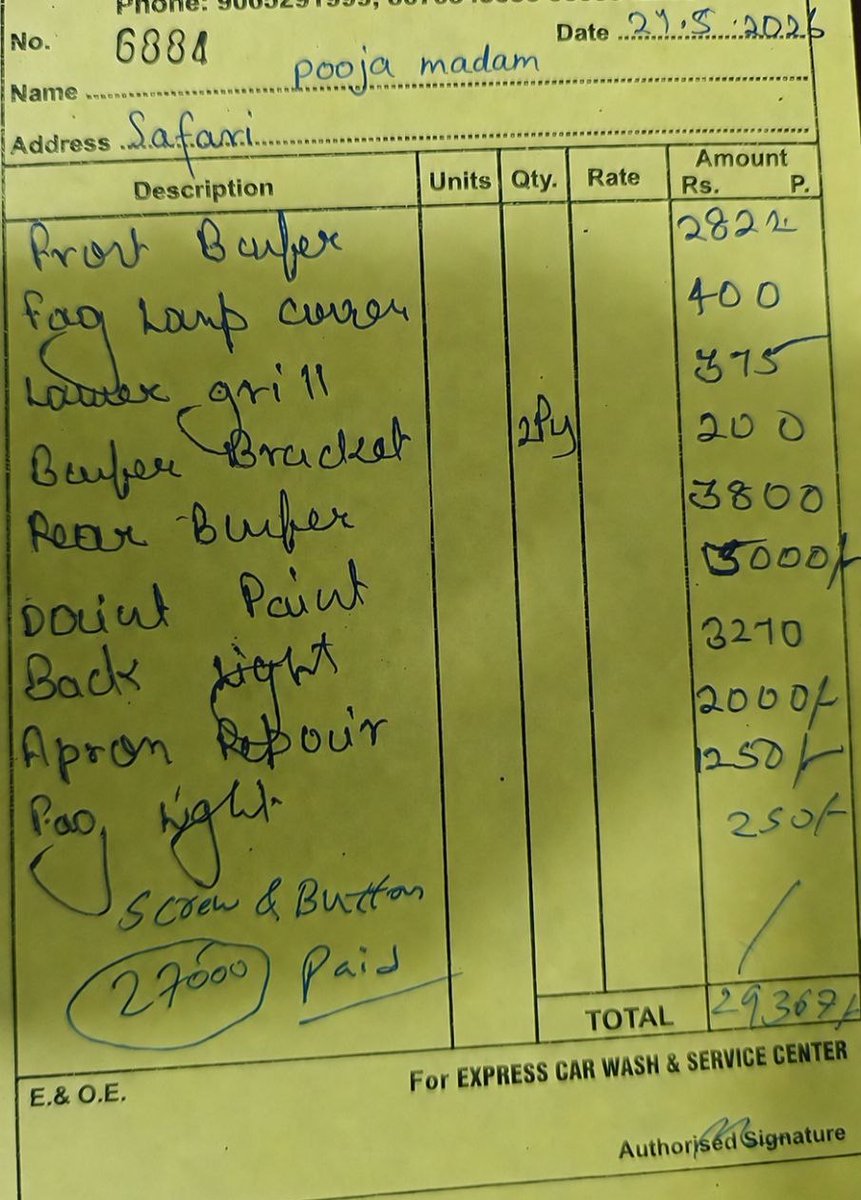 Phone:
No. 6884 Date
Name pooja madam
Address Safari
Description Units Qty. Rate Amount
Rs. P.
Front Bufer 2822
Fog Lamp curren 400
Lower grill 375
Bufer Bracket 2Py 200
Rear Bufer 3800
Doint Paint 15000/-
Back Light 3270
Apron Repair 2000/-
Fog Light 1250/-
Screw & Button 250/-
27000 Paid
TOTAL 29,367/-
E.& O.E. For EXPRESS CAR WASH & SERVICE CENTER
Authorised Signature